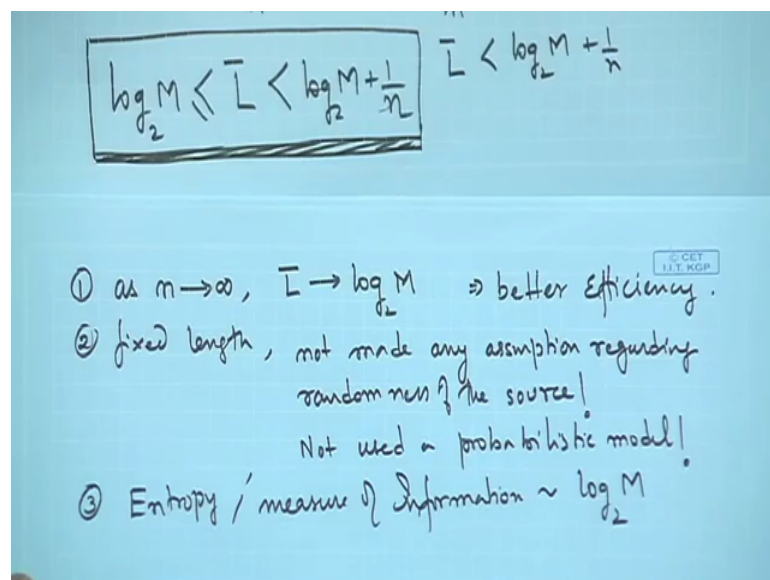 log₂M ≤ L̄ < log₂M + 1/n
L̄ < log₂M + 1/n
© CET
I.I.T. KGP
① as n→∞, L̄ → log₂M ⇒ better Efficiency.
② fixed length, not made any assmption regarding
randomness of the source!
Not used a probabilistic model!
③ Entropy / measure of Information ~ log₂M